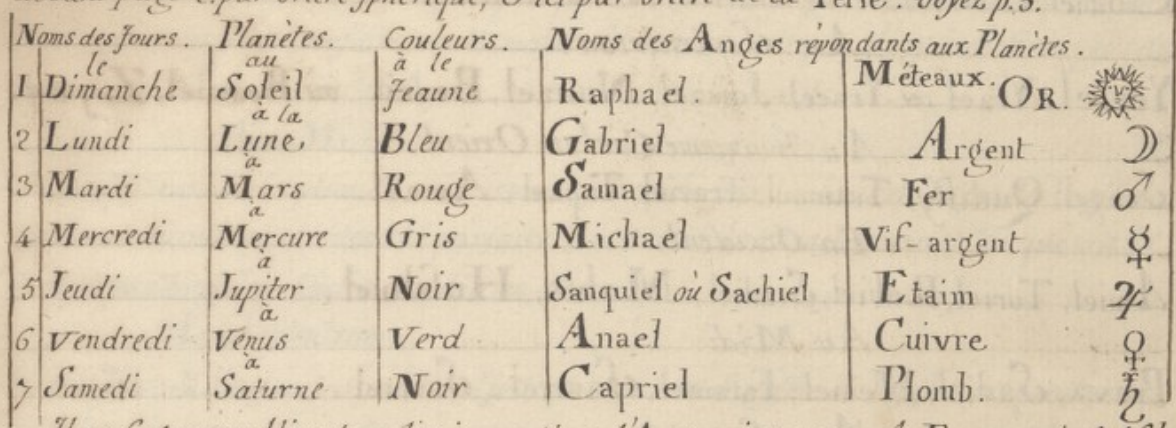 Noms des Jours. Planètes. Couleurs. Noms des Anges répondants aux Planètes.
le au à le Méteaux.
1 Dimanche Soleil Jeaune Raphael. OR.
à la
2 Lundi Lune, Bleu Gabriel Argent
à
3 Mardi Mars Rouge Samael Fer
à
4 Mercredi Mercure Gris Michael Vif-argent
à
5 Jeudi Jupiter Noir Sanquiel où Sachiel Etaim
à
6 Vendredi Vénus Verd Anael Cuivre
à
7 Samedi Saturne Noir Capriel Plomb.